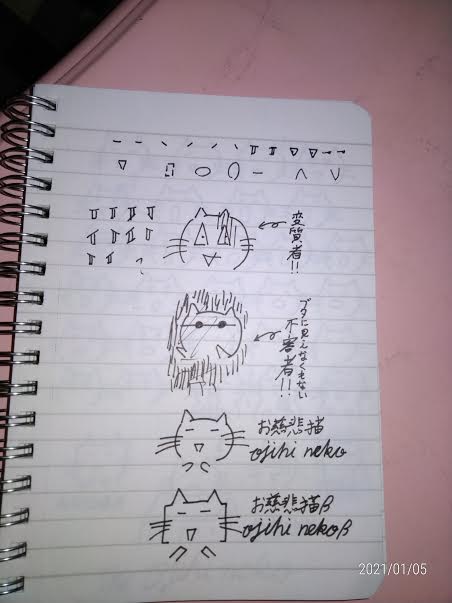 変質者!!
ブタに見えなくもない
不審者!!
お慈悲猫
ojihi neko
お慈悲猫β
ojihi nekoβ
2021/01/05